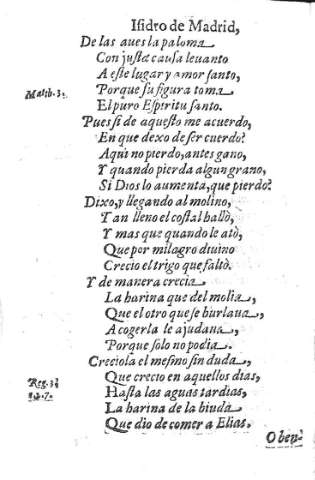 Isidro de Madrid,
De las aues la paloma
Con justa causa leuanto
A este lugar y amor santo,
Matth. 3.
Porque su figura toma
El puro Espiritu santo.
Pues si de aquesto me acuerdo,
En que dexo de ser cuerdo?
Aqui no pierdo, antes gano,
Y quando pierda algun grano,
Si Dios lo aumenta, que pierdo?
Dixo, y llegando al molino,
Tan lleno el costal hallò,
Y mas que quando le atò,
Que por milagro diuino
Crecio el trigo que faltò.
Y de manera crecia
La harina que del molia,
Que el otro que se burlaua,
A cogerla le ajudaua,
Porque solo no podia.
Creciola el mesmo sin duda,
Reg. 3.
Que crecio en aquellos dias,
Hasta las aguas tardias,
La harina de la biuda
Que dio de comer a Elias.
O ben